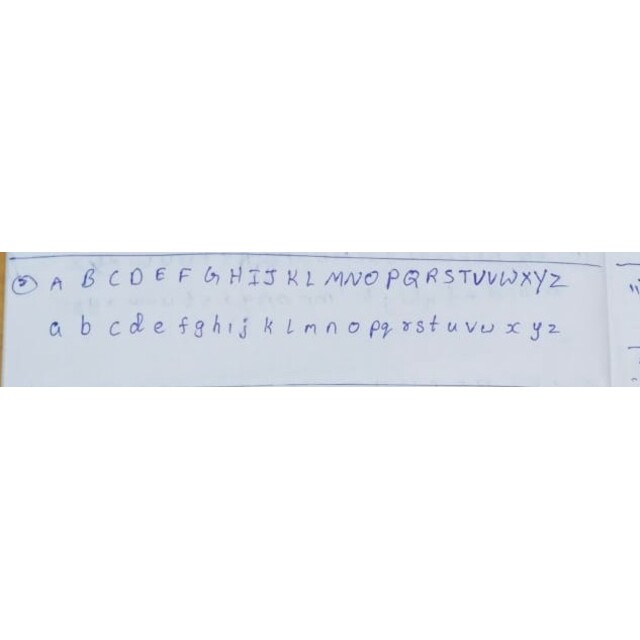 ⑤ A B C D E F G H I J K L M N O P Q R S T U V W X Y Z
a b c d e f g h i j k l m n o p q r s t u v w x y z